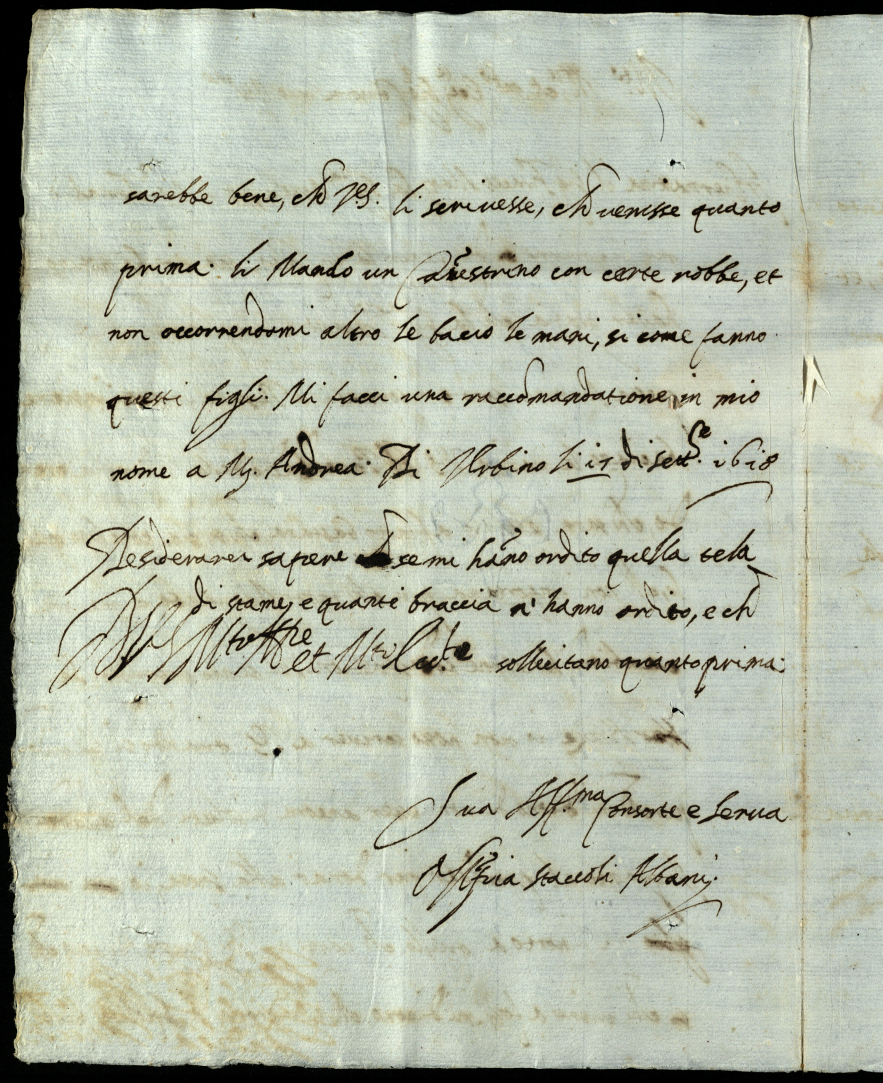 sarebbe bene, ch V.S. li scriuesse, ch uenisse quanto
prima. li Mando un Canestrino con certe robbe, et
non occorrendomi altro le bacio le mani, si come fanno
questi figli. Mi facci una raccomandatione in mio
nome a M. Andrea. Di Vrbino li 17 di sett.e 1618
Desiderarei sapere ch se mi hanno ordito quella tela
di stame, e quante braccia n' hanno ordito, e ch
D V S M.to et M.to sollecitano quanto prima.
Sua Aff.ma Consorte e Serua
Olimpia Staccoli Albani.